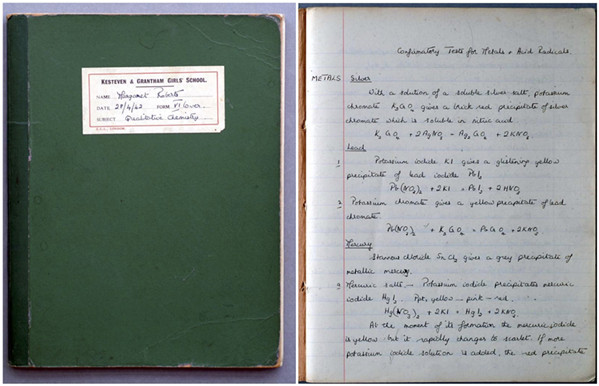 KESTEVEN & GRANTHAM GIRLS' SCHOOL.
NAME Margaret Roberts
DATE 28/4/42 FORM VI Lower
SUBJECT Qualitative Chemistry
Confirmatory Tests for Metals & Acid Radicals.
METALS Silver
With a solution of a soluble silver salt, potassium
chromate K₂CrO₄ gives a brick red precipitate of silver
chromate which is soluble in nitric acid
K₂CrO₄ + 2AgNO₃ = Ag₂CrO₄ + 2KNO₃
Lead
1 Potassium iodide KI gives a glistening yellow
precipitate of lead iodide PbI₂
Pb(NO₃)₂ + 2KI = PbI₂ + 2KNO₃
2 Potassium chromate gives a yellow precipitate of lead
chromate.
Pb(NO₃)₂ + K₂CrO₄ = PbCrO₄ + 2KNO₃
Mercury
Stannous chloride SnCl₂ gives a grey precipitate of
metallic mercury.
Mercuric salts - Potassium iodide precipitates mercuric
iodide HgI₂. Ppt. yellow - pink - red.
Hg(NO₃)₂ + 2KI = HgI₂ + 2KNO₃
At the moment of its formation the mercuric iodide
is yellow but it rapidly changes to scarlet. If more
potassium iodide solution is added, the red precipitate